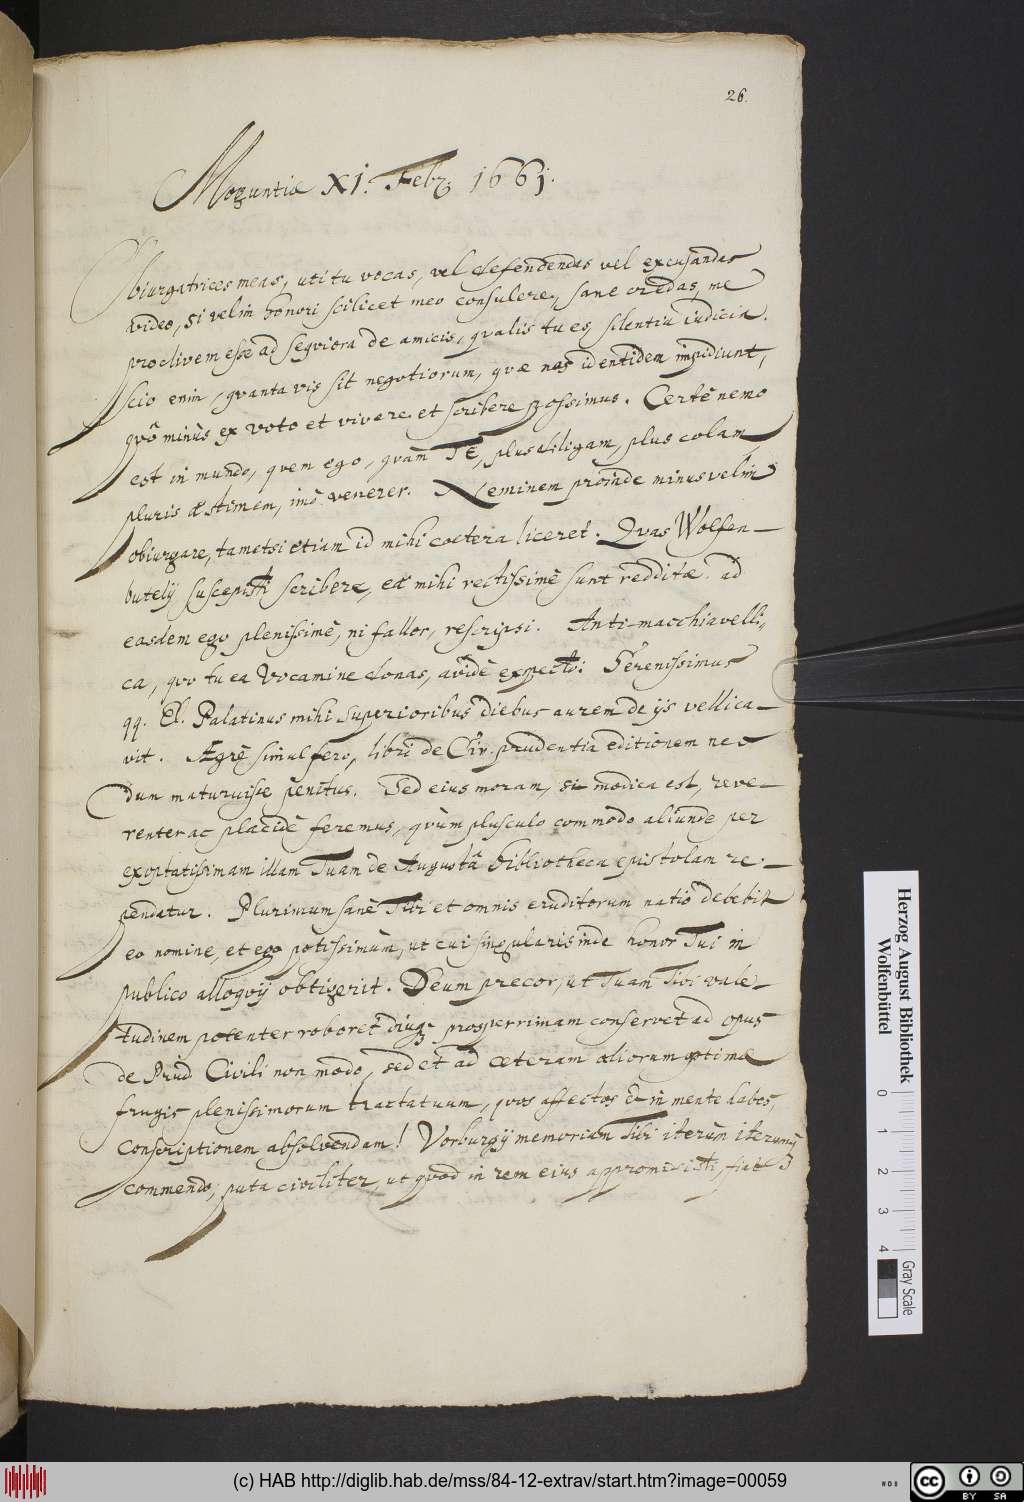 26.
Moguntiæ XI. Febr. 1661.
Obiurgatrices meas, uti tu vocas, vel defendendas vel excusandas
video, si velim honori scilicet meo consulere, sane credas, me
proclivem esse ad seqviora de amicis, qvalis tu es, silentiu iudicia.
scio enim, qvanta vis sit negotiorum, qvæ nos identidem impidiunt,
qvô minùs ex voto et vivere et scribere possimus. Certè nemo
est in mundo, qvem ego, qvàm TE, plus diligam, plus colam,
pluris æstimem, imò venerer. Neminem proinde minus velim
obiurgare, tametsi etiam id mihi coetera liceret. Qvas Wolfen-
butelij suscepisti scribere, eæ mihi rectissimè sunt redditæ. ad
easdem ego plenissimè, ni fallor, rescripsi. Anti-macchiavelli,,
ca, qvo tu ea Vocamine donas, avidè expecto: Serenissimus
qq. El. Palatinus mihi superioribus diebus aurem de ijs vellica-
vit. Ægrè simul fero, libri de Civ. prudentia editionem nec
dum maturuisse penitus. Sed eius moram, si modica est, reve-
renter ac placidè feremus, qvùm plusculo commodo aliunde per
exoptatissimam illam Tuam de Augustâ bibliotheca epistolam re-
pendatur. Plurimum sanè Tibi et omnis eruditorum natio debebit
eo nomine, et ego potissimùm, ut cui singularis inde honor Tui in
publico alloqvij obtigerit. Deum precor, ut Tuam Tibi vale-
tudinem potenter roboret diuq; prosperrimam conservet ad opus
de Prud Civili non modo, sed et ad cæteram aliorum optimæ
frugis plenissimorum tractatuum, qvos affectos & in mente habes,
conscriptionem absolvendam! Vorburgij memoriam Tibi iterùm iterumq;
commendo, puta civiliter, ut qvod in rem eius appromisisti, fiat
Herzog August Bibliothek
Wolfenbüttel
0 1 2 3 4
Gray Scale
(c) HAB http://diglib.hab.de/mss/84-12-extrav/start.htm?image=00059
cc BY SA